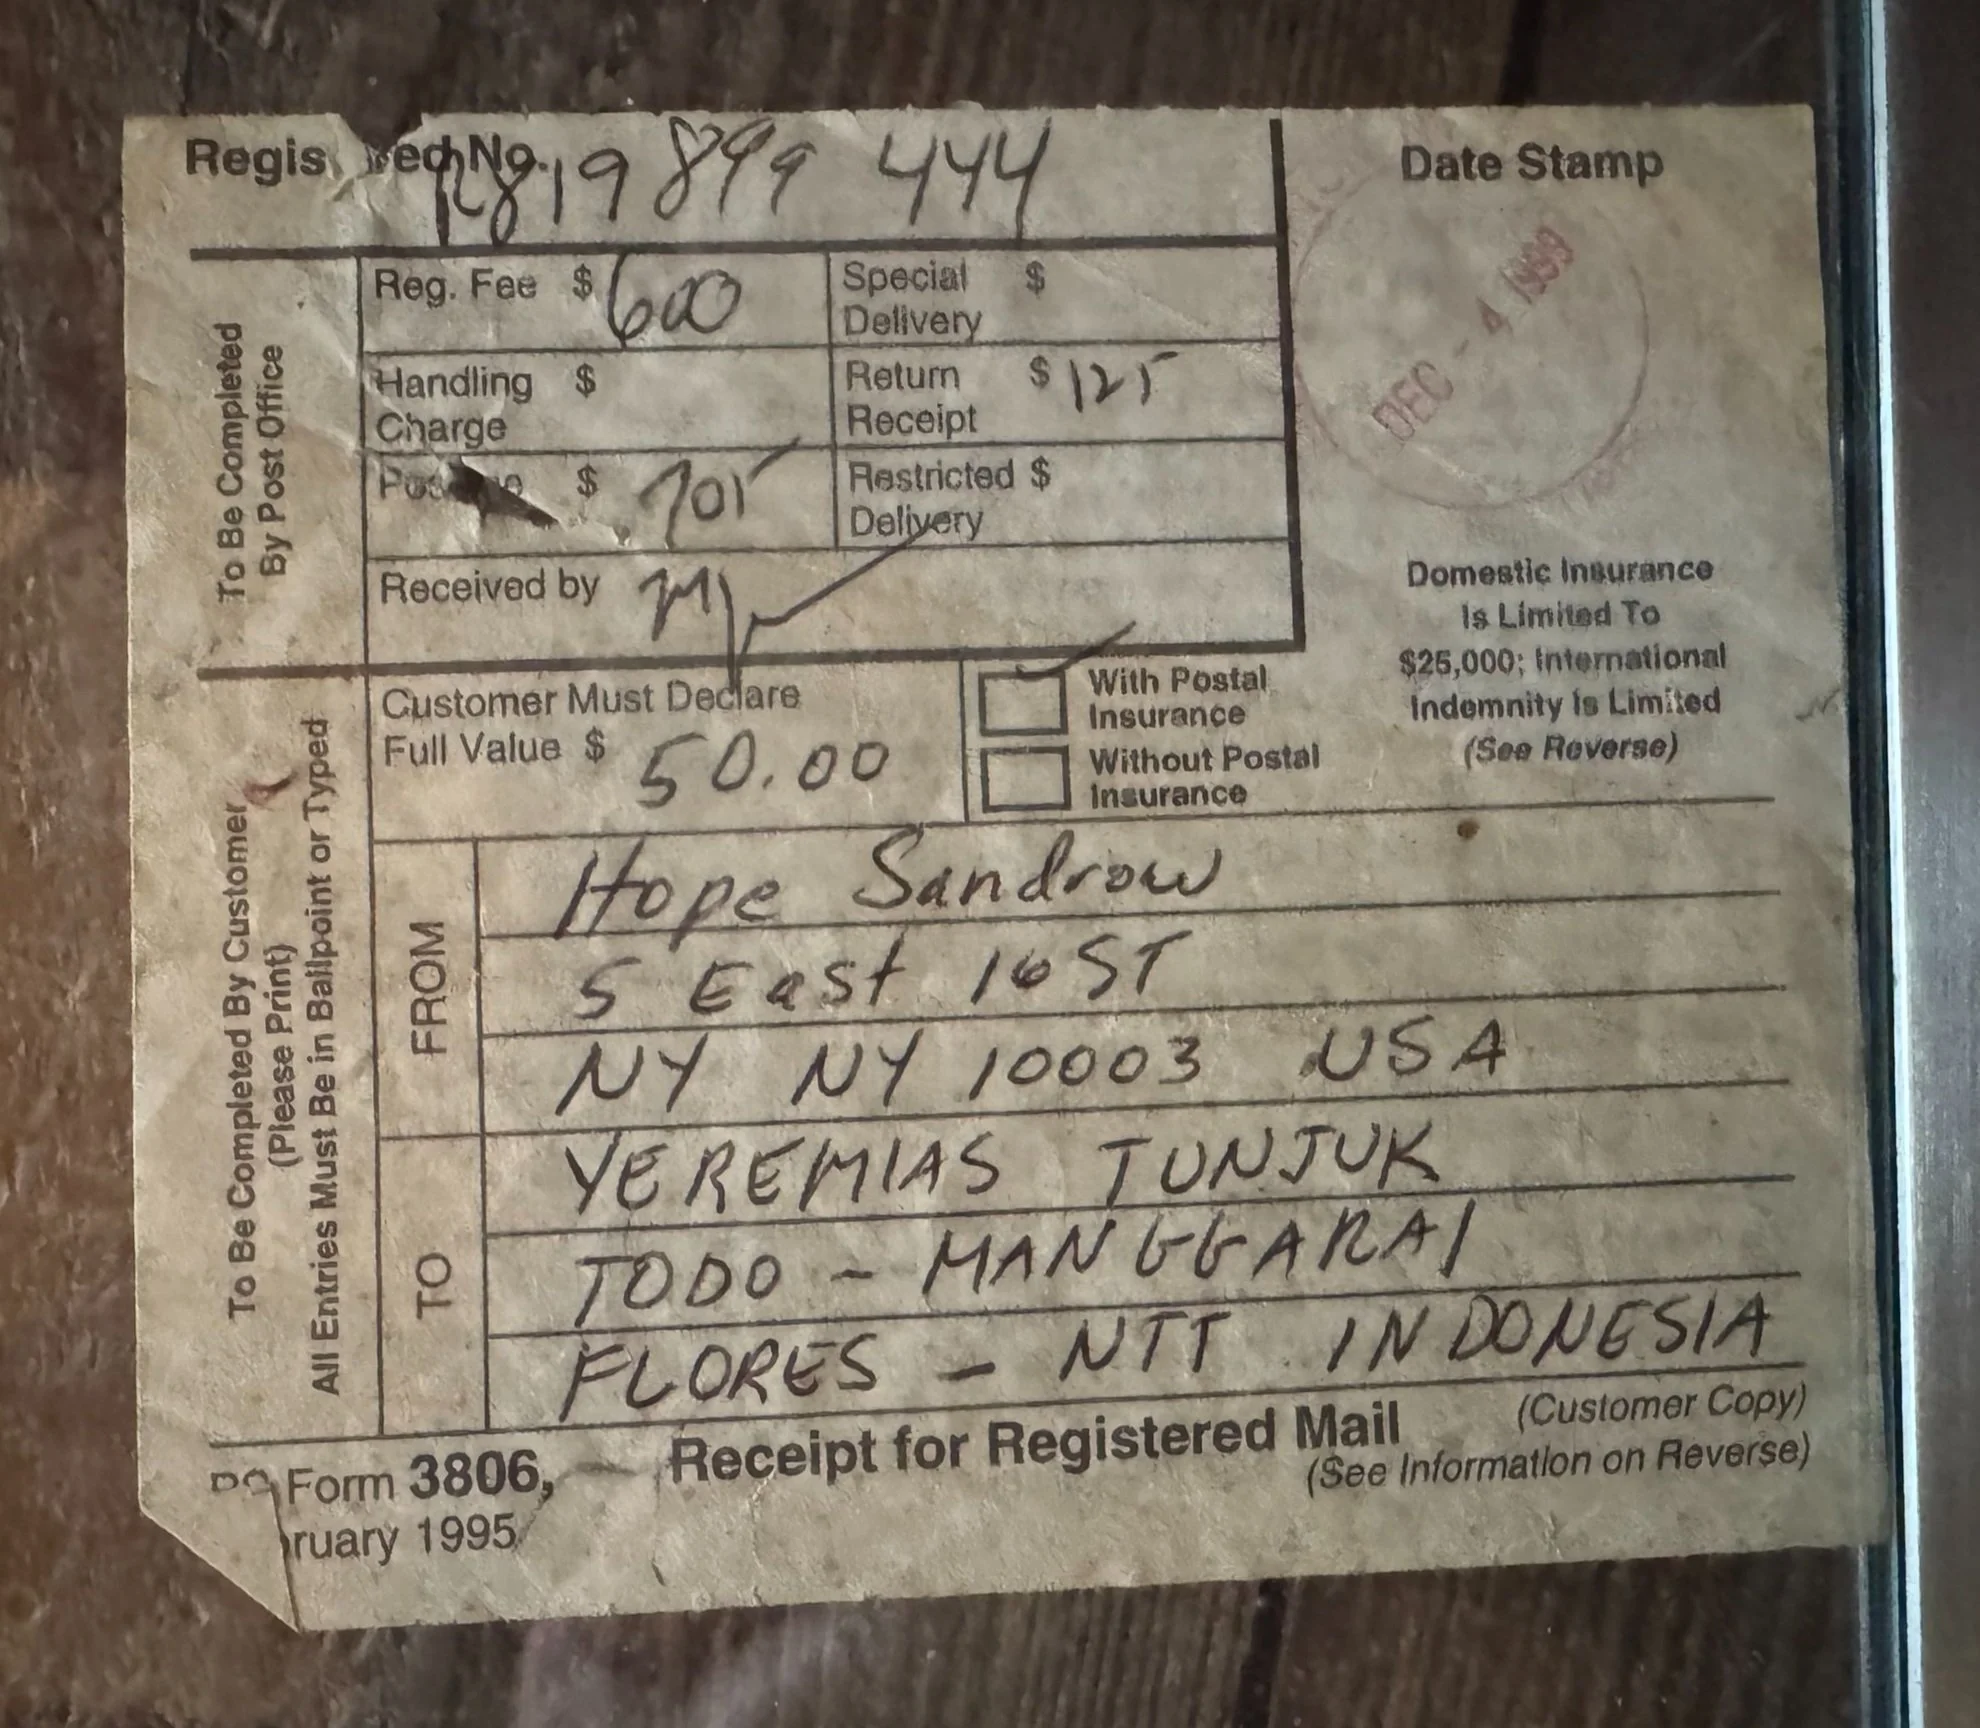 Registered No. R819 899 444
Date Stamp
DEC - 4 1999
To Be Completed
By Post Office
Reg. Fee $ 600
Special
Delivery $
Handling
Charge $
Return
Receipt $ 125
Postage $ 705
Restricted
Delivery $
Received by
Domestic Insurance
Is Limited To
$25,000; International
Indemnity Is Limited
(See Reverse)
To Be Completed By Customer
(Please Print)
All Entries Must Be in Ballpoint or Typed
Customer Must Declare
Full Value $ 50.00
With Postal
Insurance
Without Postal
Insurance
FROM
Hope Sandrow
5 East 16 ST
NY NY 10003 USA
TO
YEREMIAS TUNJUK
TODO - MANGGARAI
FLORES - NTT INDONESIA
PS Form 3806,
ruary 1995
Receipt for Registered Mail
(Customer Copy)
(See Information on Reverse)